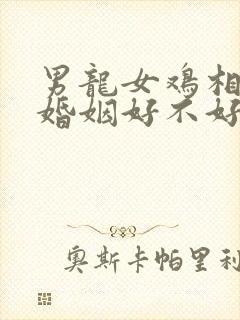 男龍女鸡相
婚姻好不好
奥斯卡帕里利